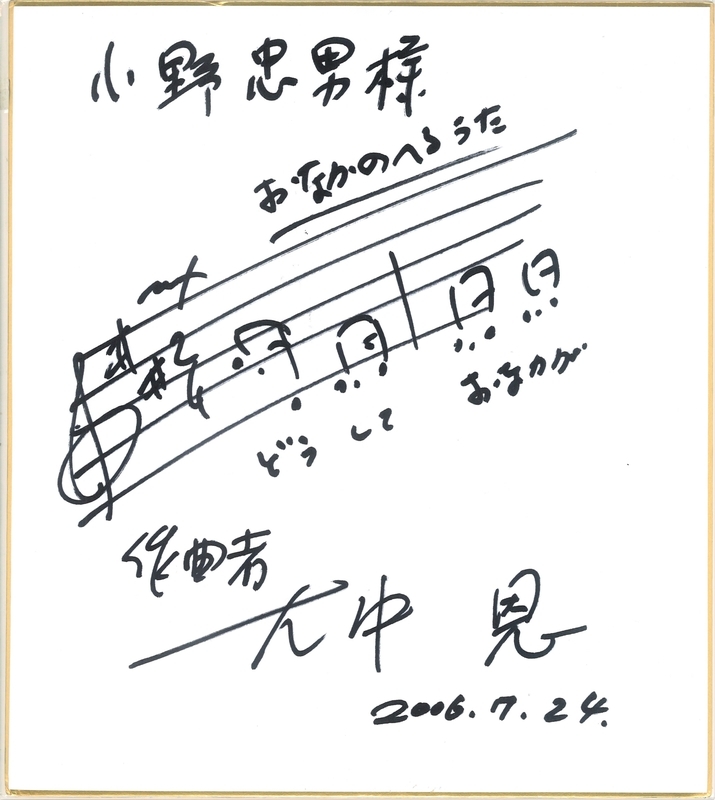 小野忠男様
おなかのへるうた
mf
どうして
おなかが
作曲者
大中 恩
2006.7.24.